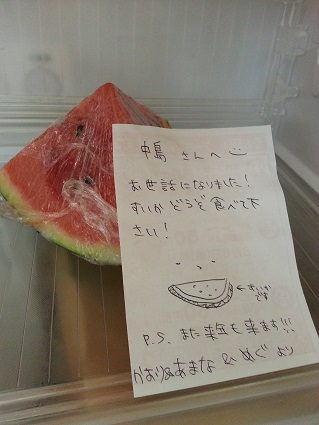 中嶋 さんへ
お世話になりました!
すいか どうぞ 食べて下
さい!
←すいか
です
P.S. また来年も来ます!!!
かおり&あまな & めぐ より